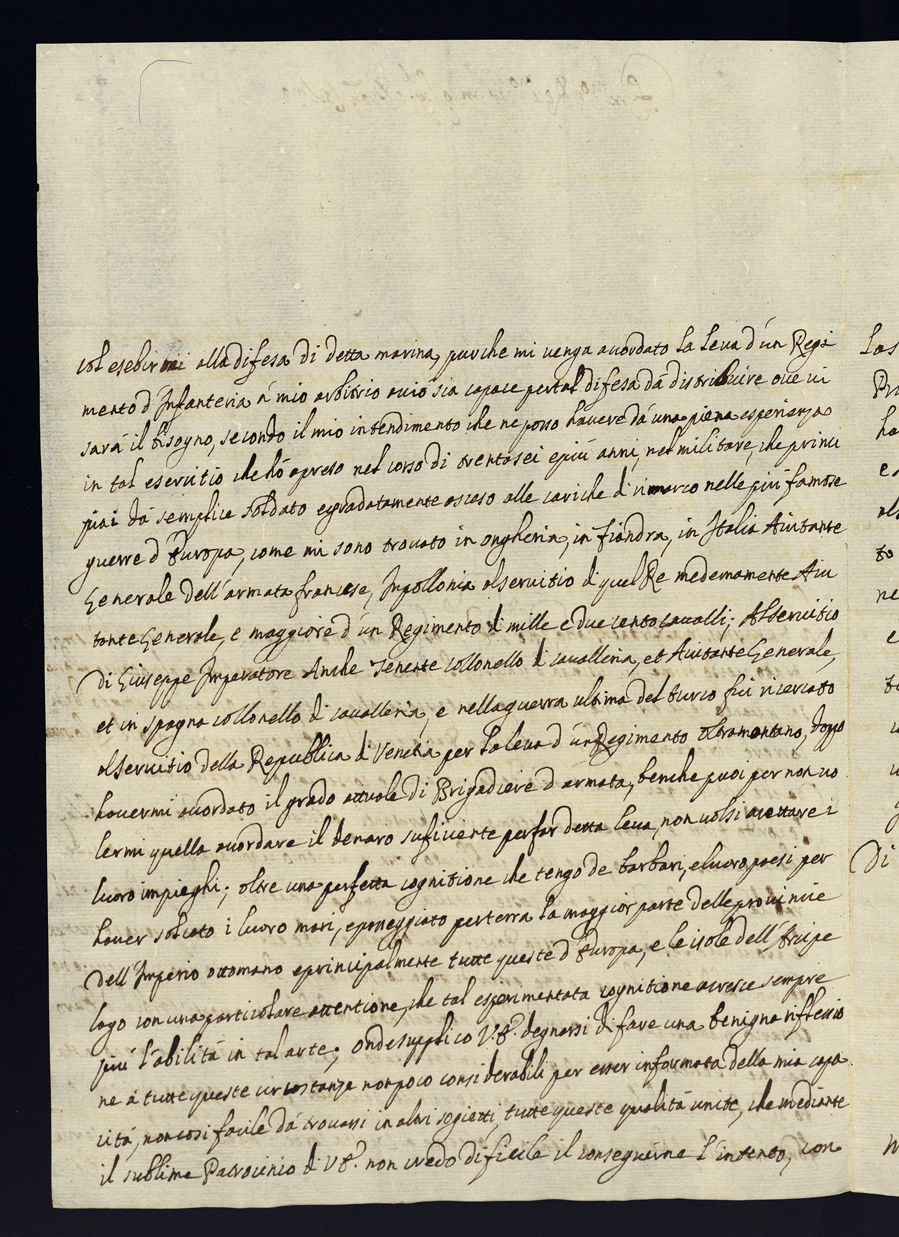 col esebirmi alla difesa di detta marina, purche mi venga acordato la leva d'un Regi
mento d'Infanteria á mio arbitrio acciò sia capace per tal difesa dá distribuire ove vi
sará il bisogno, secondo il mio intendimento che ne posso havere dá una piena esperienza
in tal esercitio che hó apreso nel corso di trentasei e piú anni, nel militare, che princi
piai dá semplice soldato e gradatamente asceso alle cariche di rimarco nelle piú famose
guerre d'Europa, come mi sono trovato in ongheria, in fiandra, in Italia Aiutante
Generale dell'armata francese, In pollonia al servitio di quel Re medemamente Aiu
tante Generale, e maggiore d'un Regimento di mille e due cento cavalli; Al servitio
di Giuseppe Imperatore Anche Tenente collonello di cavalleria, et Aiutante Generale,
et in spagna collonello di cavalleria, e nella guerra ultima del turco fui ricercato
al servitio della Republica di Venetia per la leva d'un Regimento oltramontano, doppo
havermi acordato il grado attuale di Brigadiere d'armata, benche puoi per non vo
lermi quella acordare il denaro suficiente per far detta leva, non volsi acettare i
luoro impieghi; oltre una perfetta cognitione che tengo de barbari, e luoro paesi per
haver solcato i luoro mari, e paseggiato per terra la maggior parte delle provincie
dell'Imperio ottomano e principalmente tutte queste d'Europa, e le isole dell'Arcipe
lago con una particolare attentione, che tal esperimentata cognitione acresce sempre
piú l'abilitá in tal arte; onde supplico V.E. degnarsi di fare una benigna riflessio
ne á tutte queste circostanze non poco considerabili per esser informata della mia capa
cità, non cosi facile dá trovarsi in altri sogietti, tutte queste qualitá unite, che mediante
il sublime Patrocinio di V.E. non credo dificile il conseguirne l'intento, con
Di